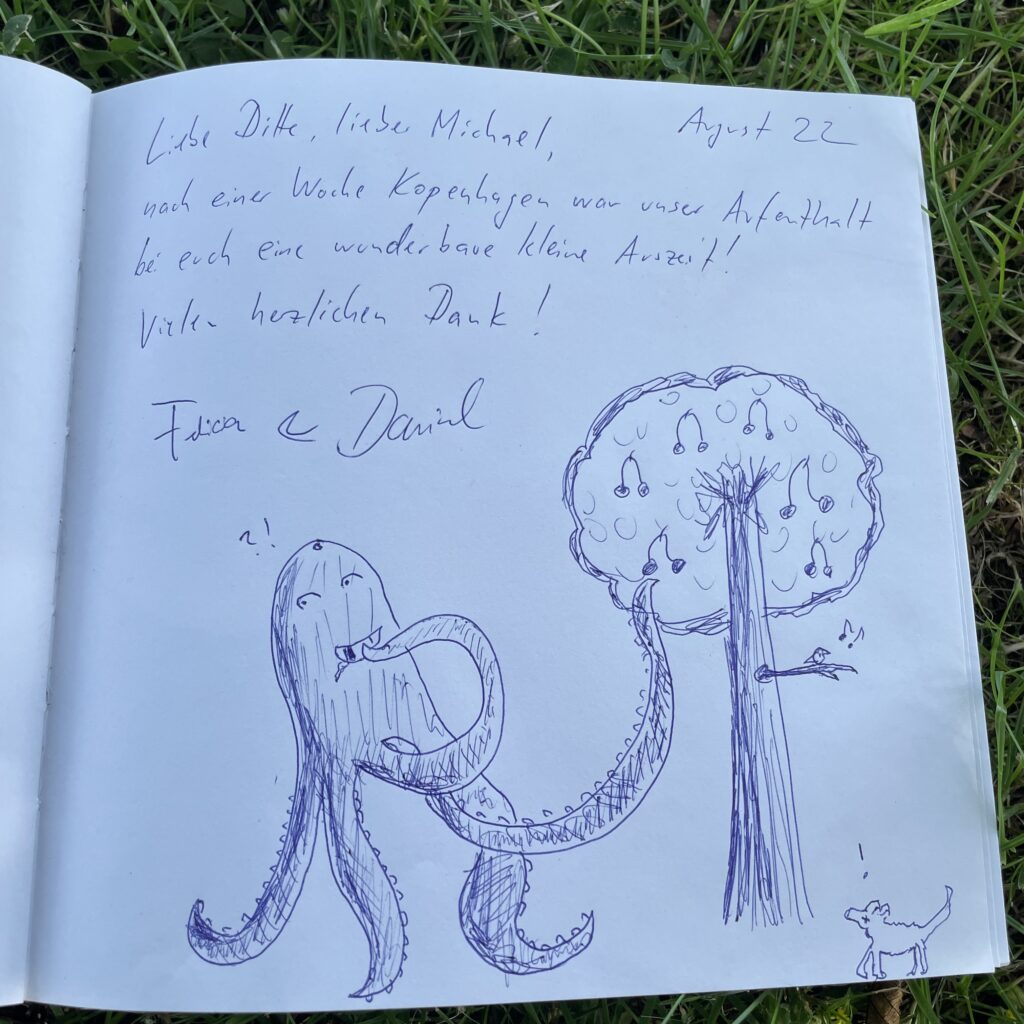 Liebe Ditte, lieber Michael, August 22
nach einer Woche Kopenhagen war unser Aufenthalt
bei euch eine wunderbare kleine Auszeit!
Vielen herzlichen Dank!
& Daniel
?!
!